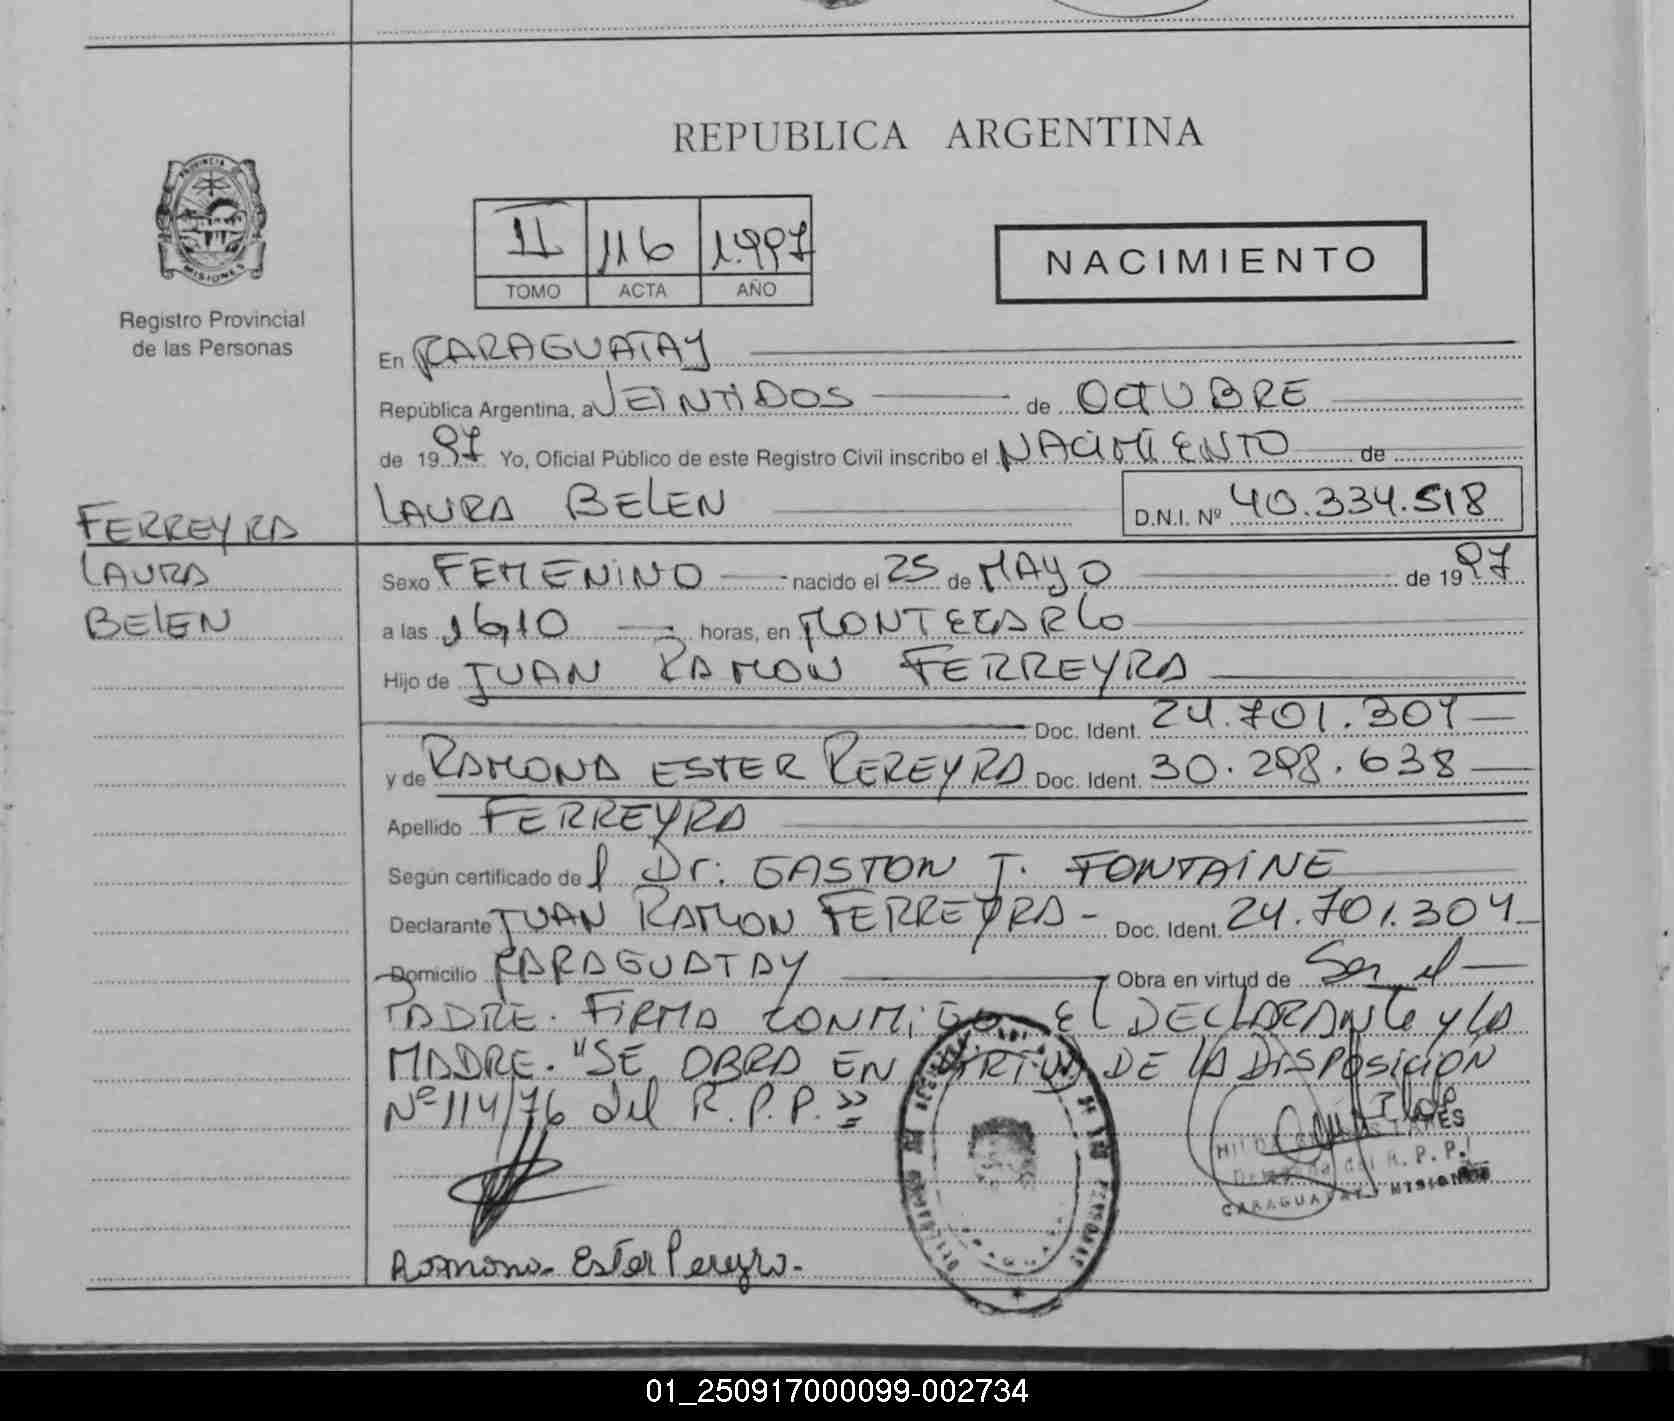 REPUBLICA ARGENTINA
PROVINCIA
MISIONES
Registro Provincial
de las Personas
II 116 1.997
TOMO ACTA AÑO
NACIMIENTO
En CARAGUATAY
República Argentina, a VEINTIDOS de OCTUBRE
de 1997 Yo, Oficial Público de este Registro Civil inscribo el NACIMIENTO de
LAURA BELEN D.N.I. Nº 40.334.518
FERREYRA
LAURA
BELEN
Sexo FEMENINO nacido el 25 de MAYO de 1997
a las 16,10 horas, en MONTECARLO
Hijo de JUAN RAMON FERREYRA
Doc. Ident. 24.701.304
y de RAMONA ESTER PEREYRA Doc. Ident. 30.298.638
Apellido FERREYRA
Según certificado del Dr: GASTON J. FONTAINE
Declarante JUAN RAMON FERREYRA - Doc. Ident. 24.701.304
Domicilio CARAGUATAY Obra en virtud de Ser el
PADRE. FIRMA CONMIGO EL DECLARANTE y LA
MADRE. "SE OBRA EN VIRTUD DE LA DISPOSICION
Nº 114/76 del R.P.P."
Delegada del R.P.P.
CARAGUATAY MISIONES
Ramona Ester Pereyra.
01_250917000099-002734